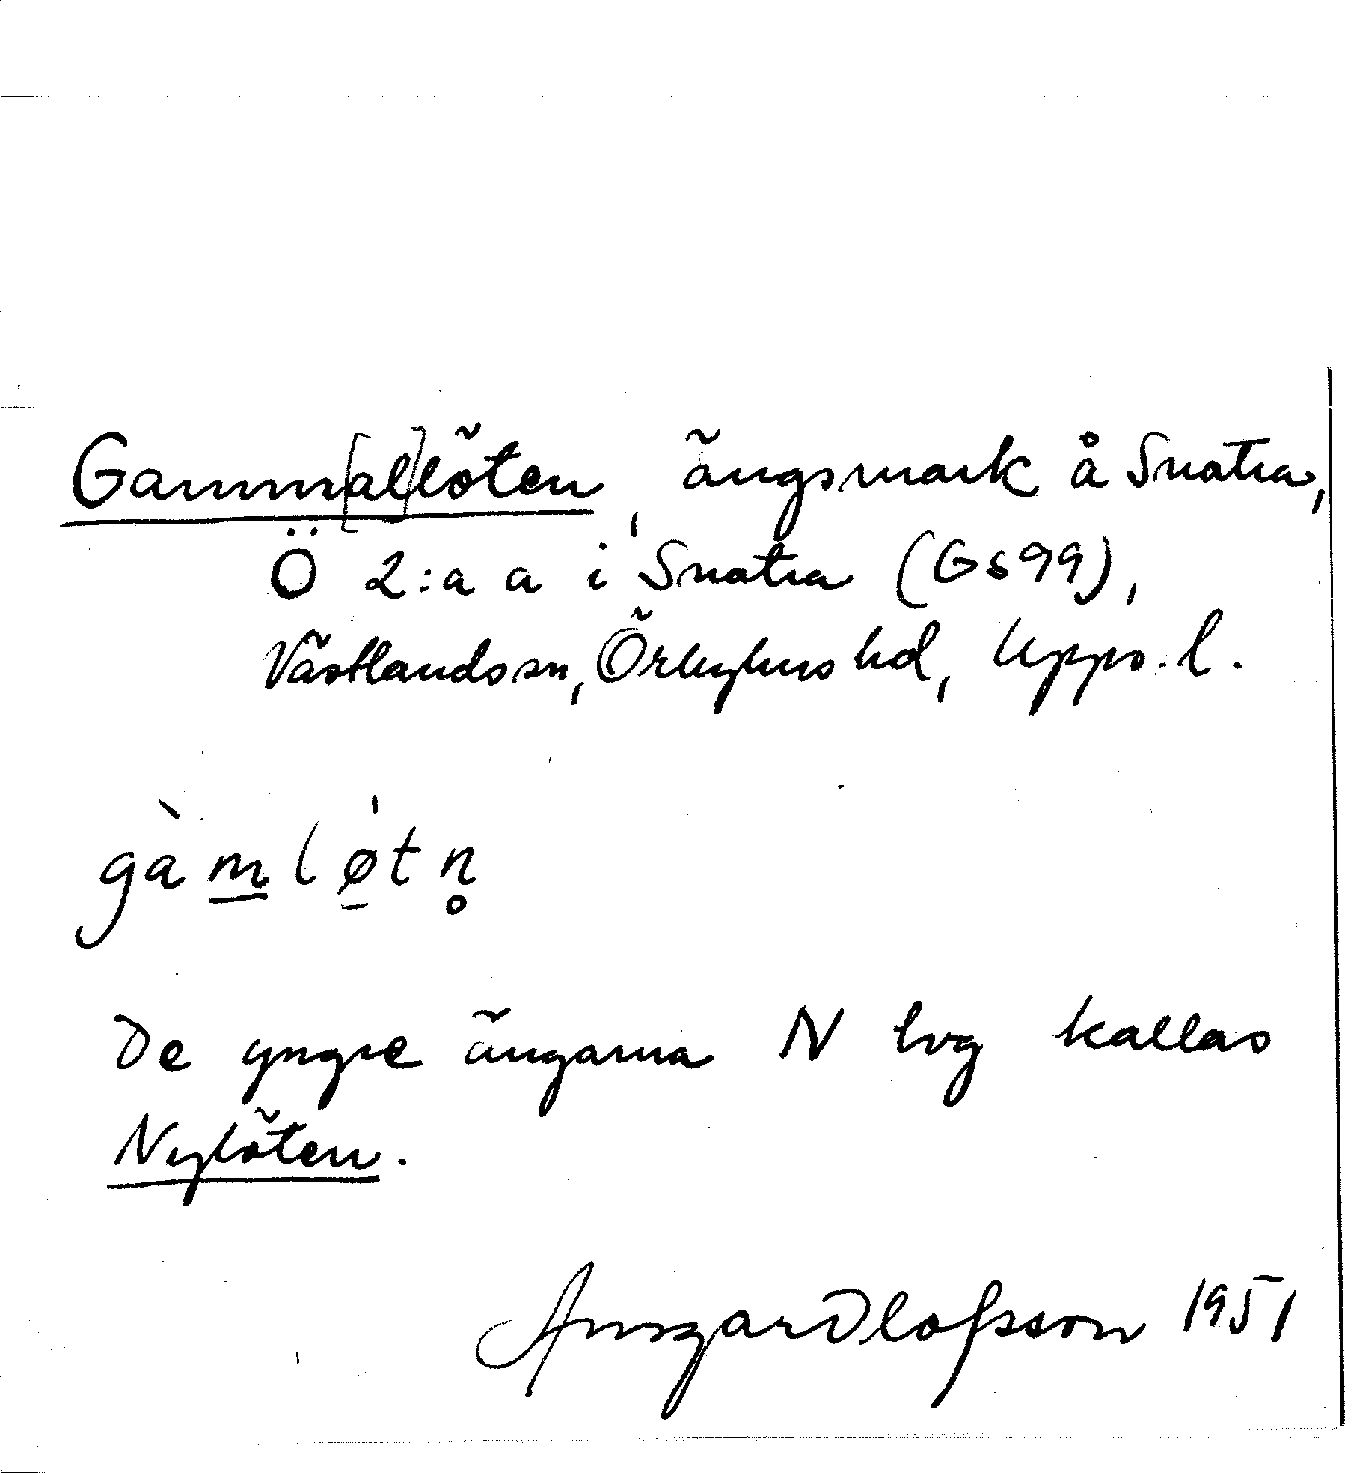 Gamm[al]löten, ängsmark å Snatra,
Ö 2:a a i Snatra (GS99),
Västlands sn, Örbyhus hd, Upps. l.
gàm̲lǿ̲tn̥
De yngre ängarna N bvg kallas
Nylöten.
Ansgar Olofsson 1951